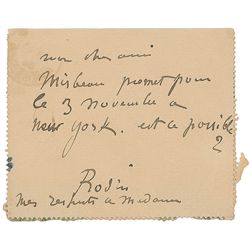 mon cher ami
Mirbeau promet pour
le 3 novembre a
new york. est ce possible
?
Rodin
Mes respects a Madame